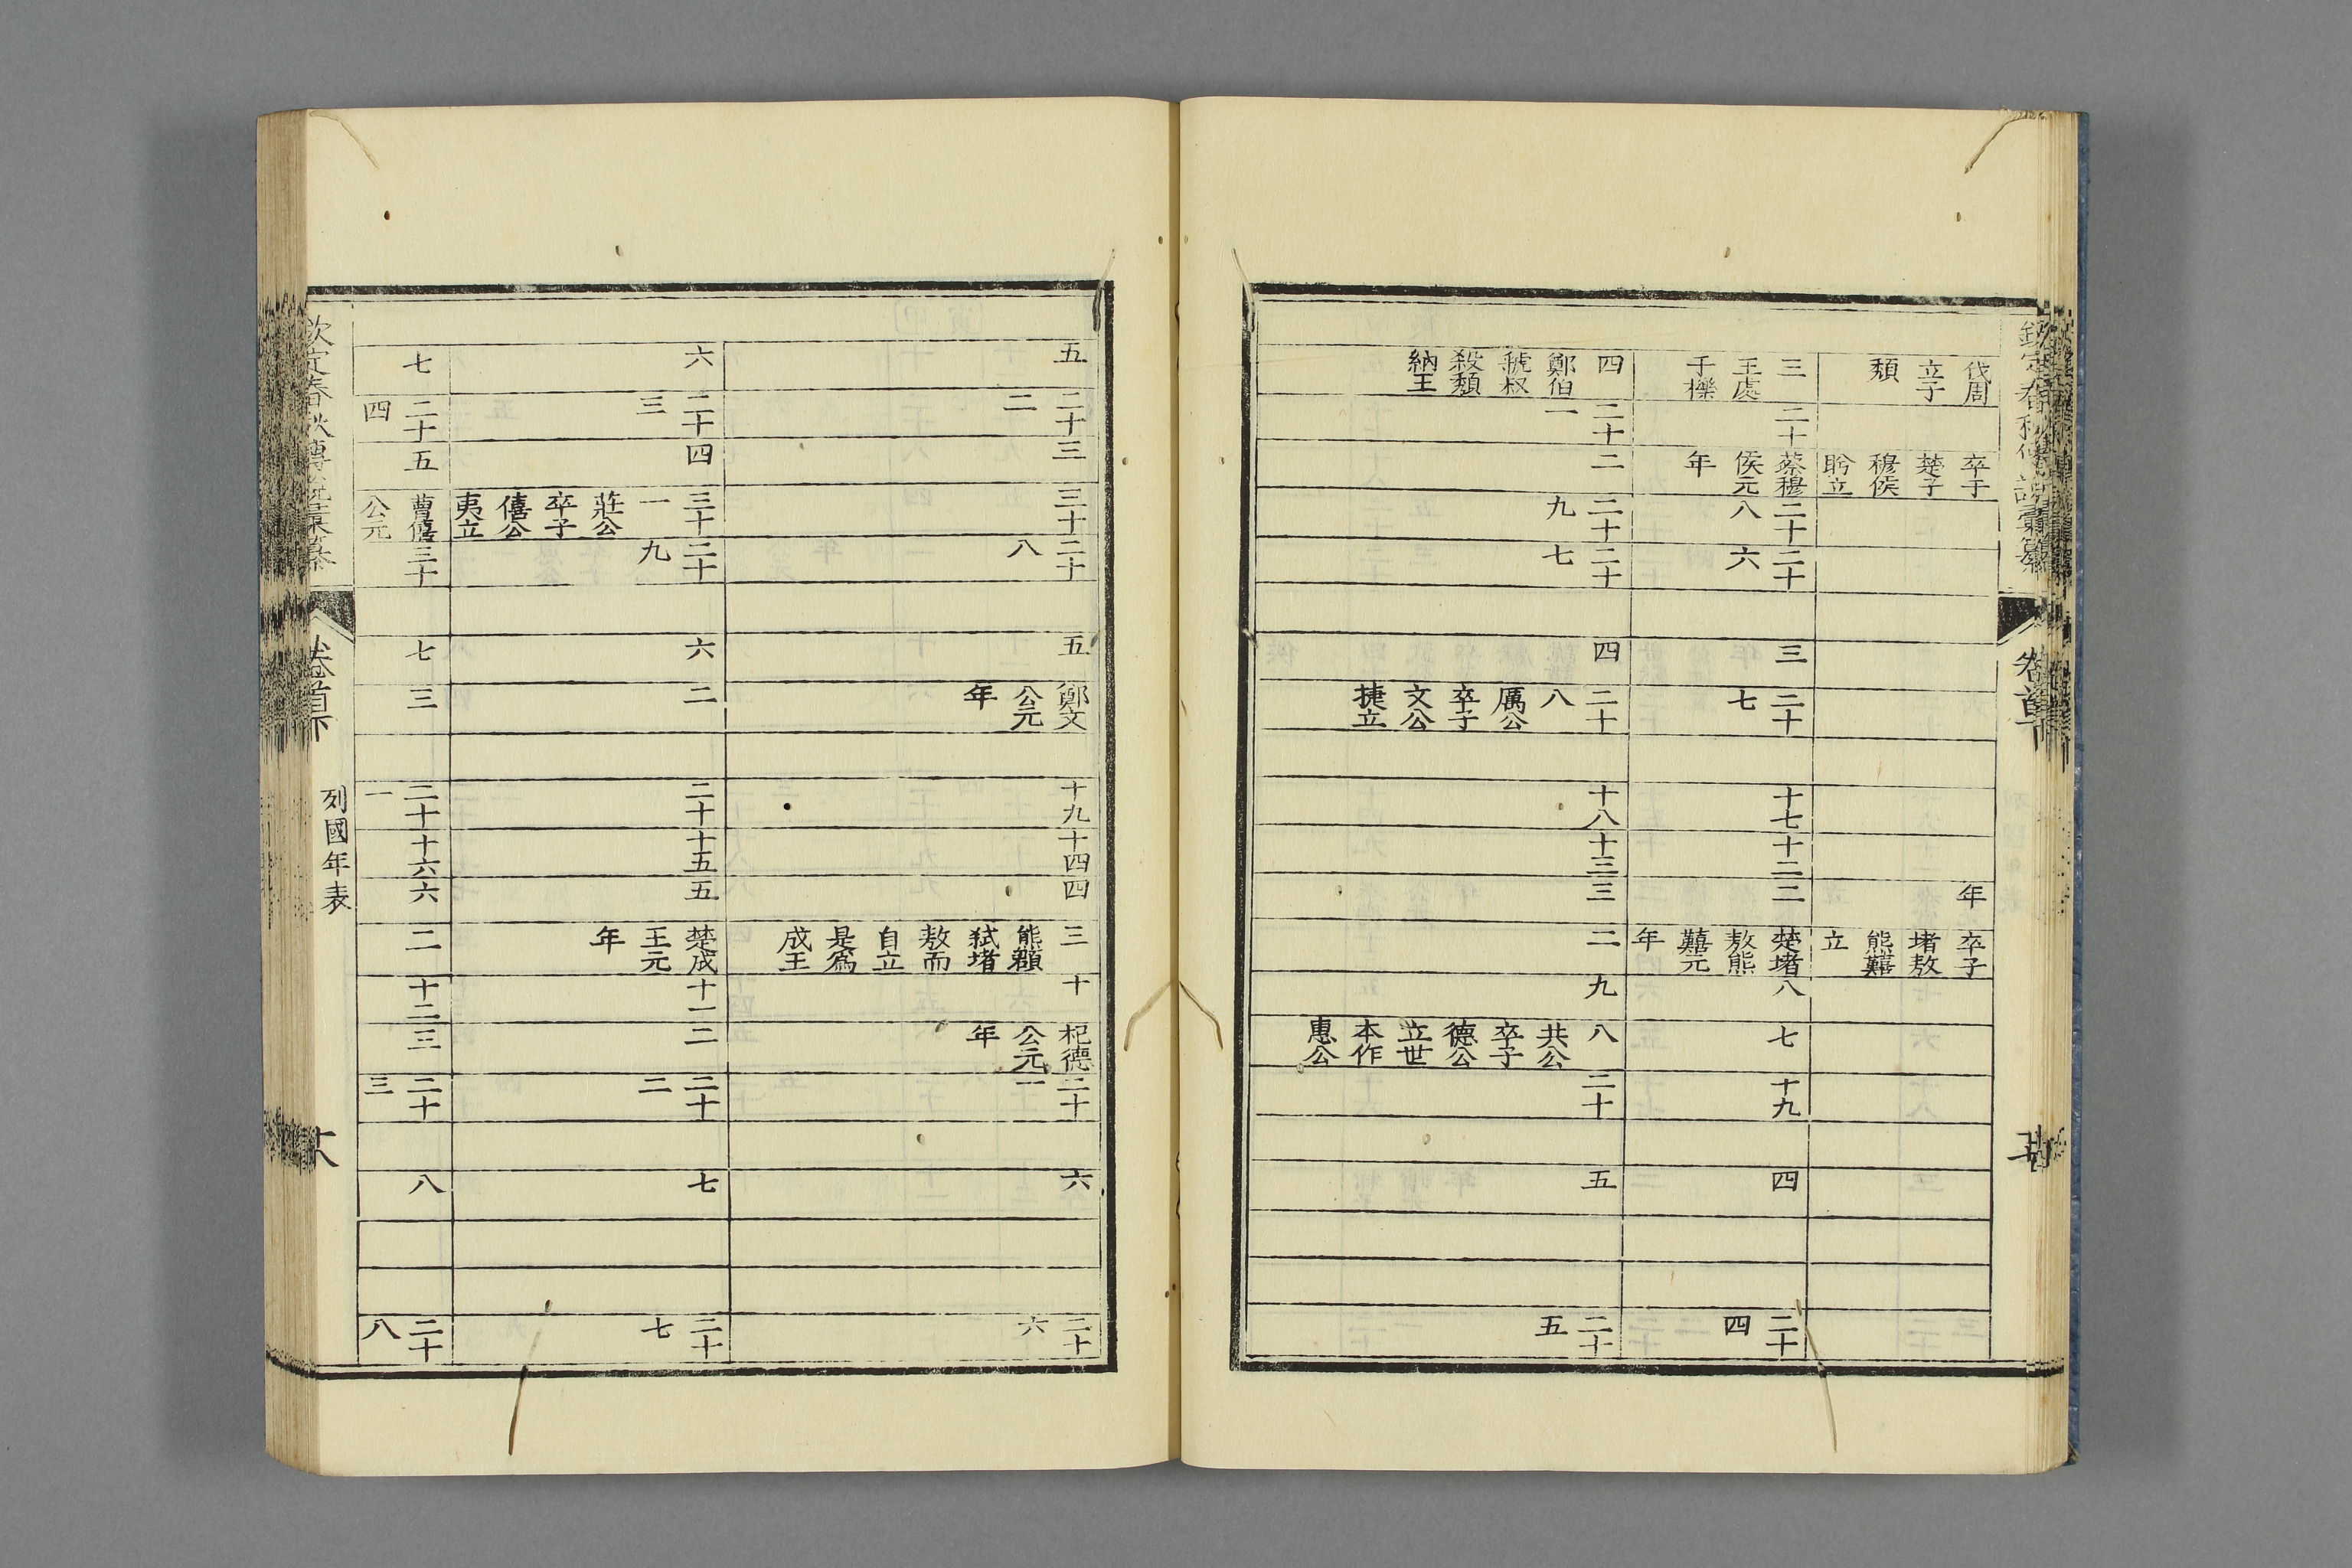 欽定春秋傳說彙纂
卷首下
伐周
立子
頹
卒于
楚子
穆侯
肹立
年
卒子
堵敖
熊囏
立
三
王處
于櫟
二十
蔡穆
侯元
年
二十
八
二十
六
三
二十
七
十七
十二
二
楚堵
敖熊
囏元
年
八
七
十九
四
二十
四
四
鄭伯
虢叔
殺頹
納王
二十
一
二
二十
九
二十
七
四
二十
八
厲公
卒子
文公
捷立
十八
十三
三
二
九
八
共公
卒子
德公
立世
本作
惠公
二十
五
二十
五
五
二十
二
三
三十
二十
八
五
鄭文
公元
年
十九
十四
四
三
熊頵
弑堵
敖而
自立
是爲
成王
十
杞德
公元
年
二十
一
六
二十
六
六
二十
三
四
三十
一
莊公
卒子
僖公
夷立
二十
九
六
二
二十
十五
五
楚成
王元
年
十一
二
二十
二
七
二十
七
七
二十
四
五
曹僖
公元
三十
七
三
二十
一
十六
六
二
十二
三
二十
三
八
二十
八
欽定春秋傳說彙纂
卷首下
列國年表